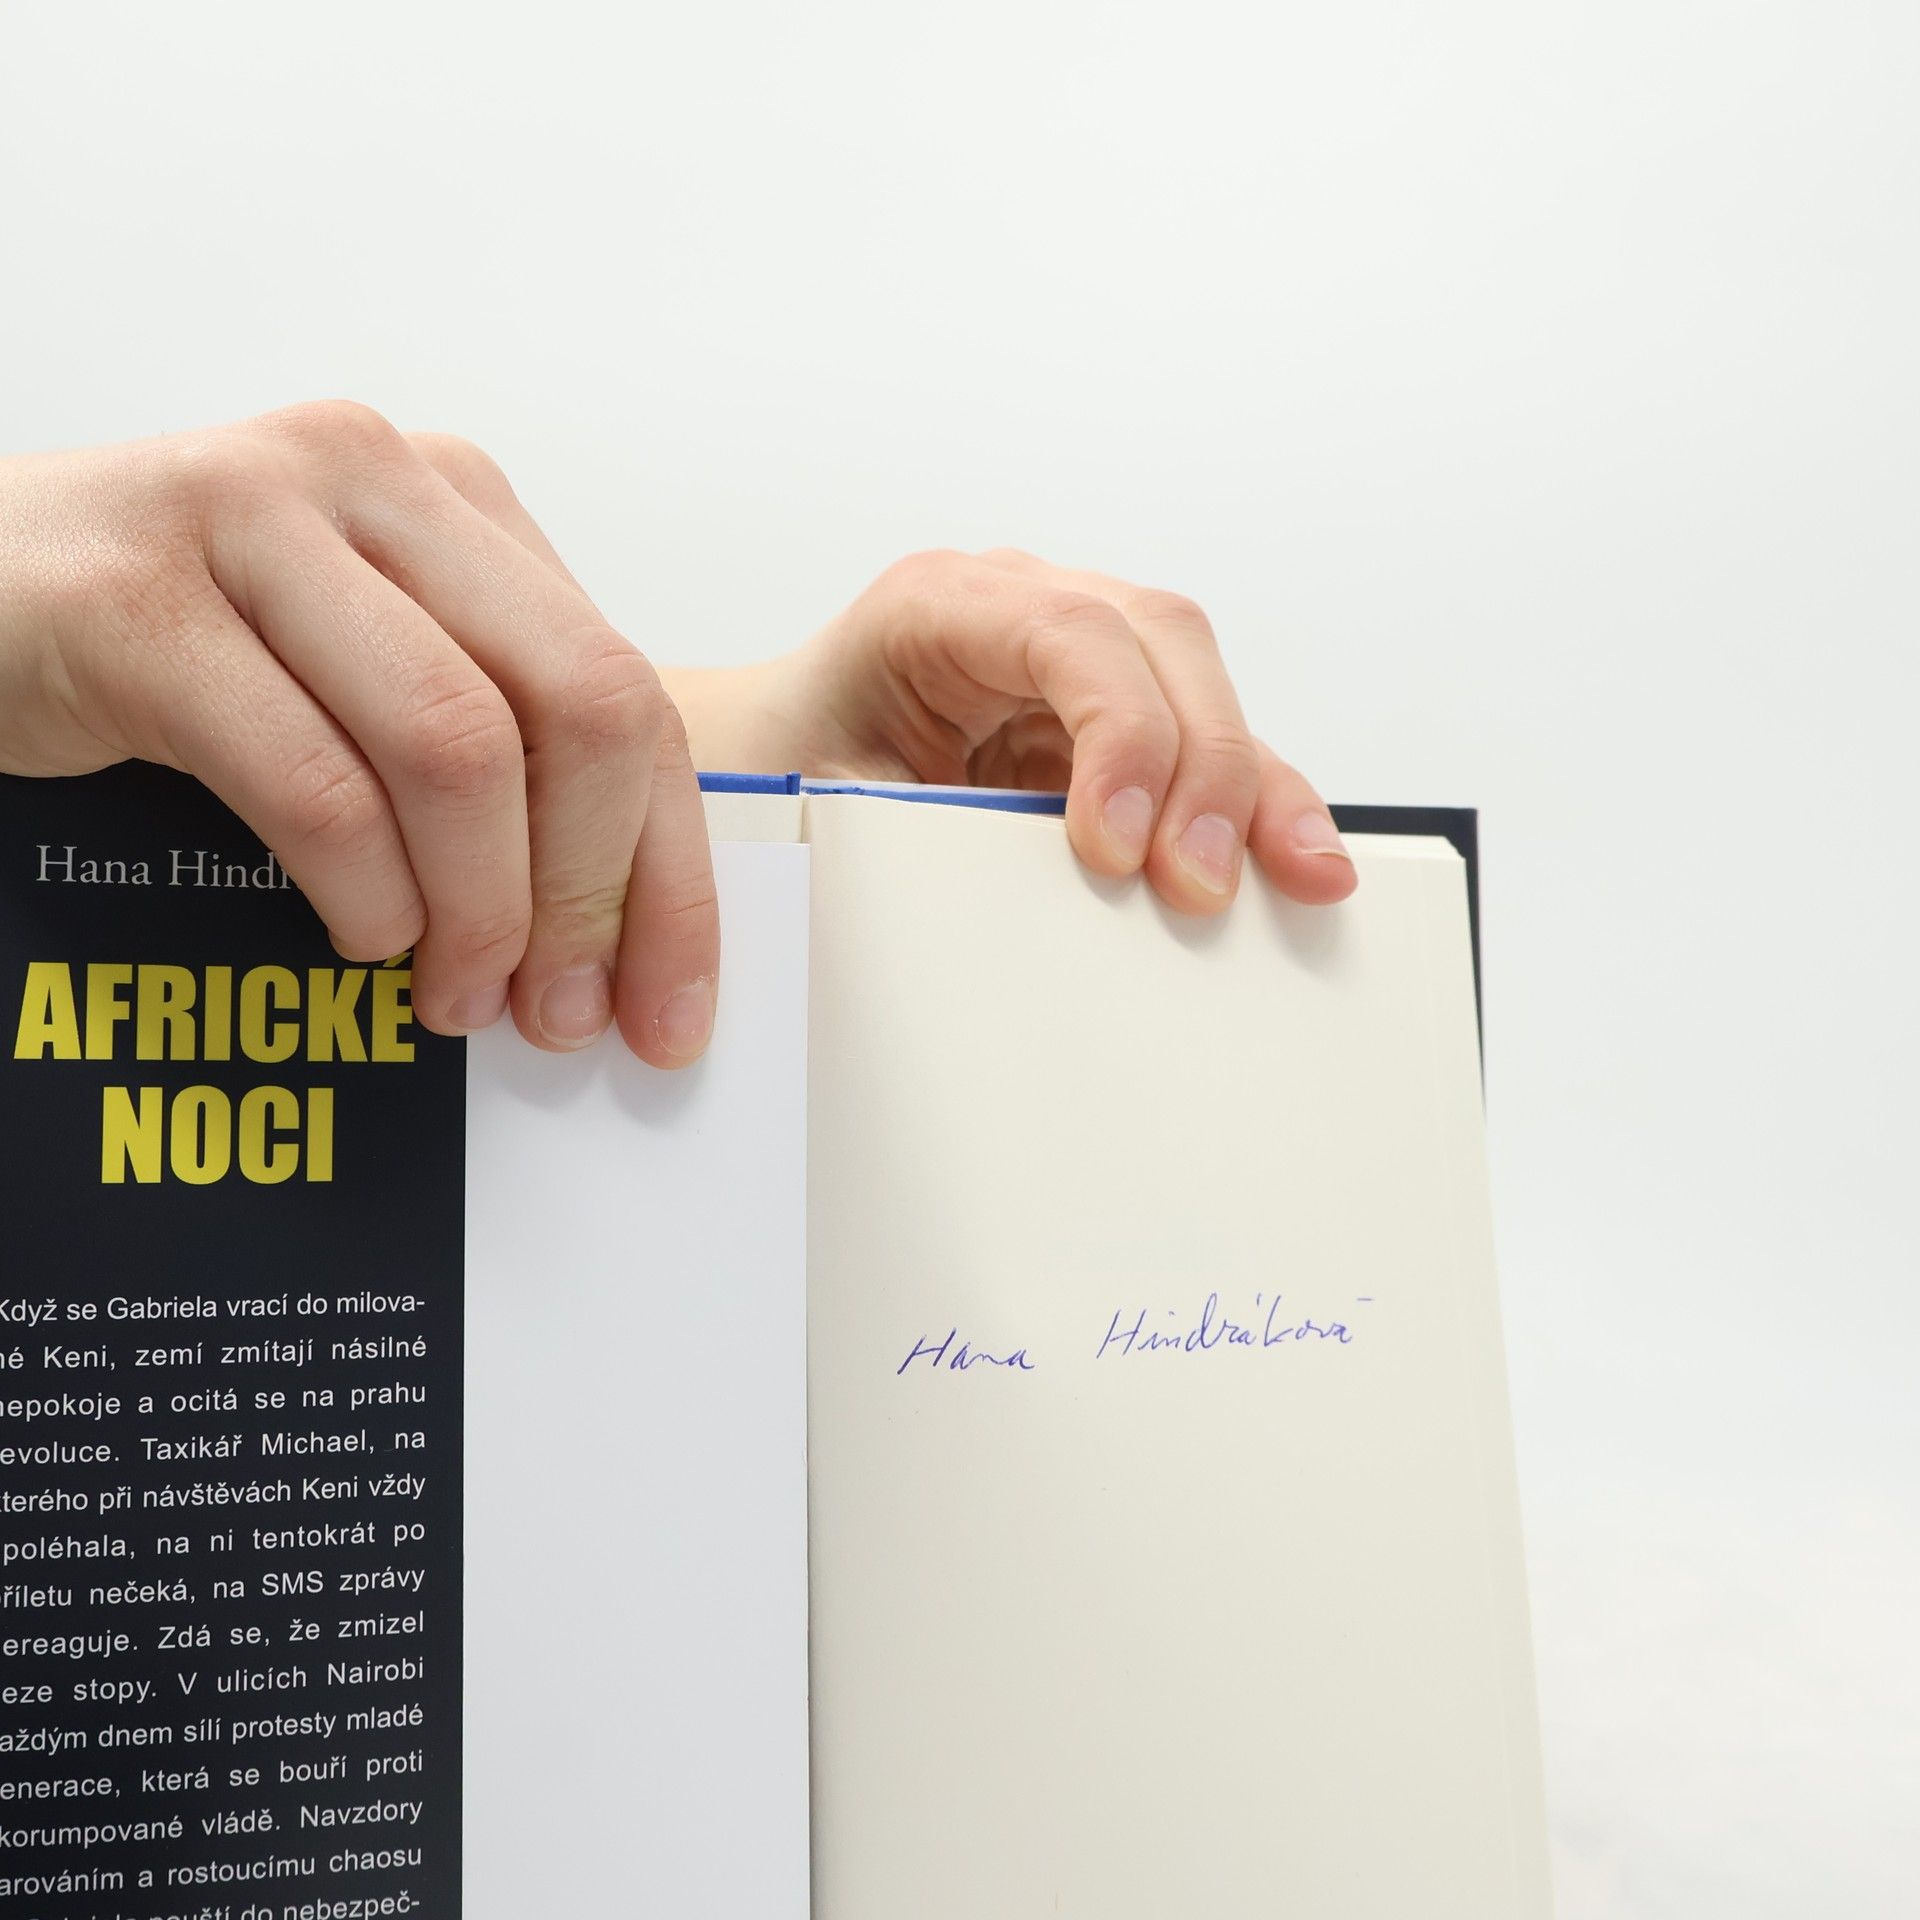 Hana Hindr
AFRICKÉ
NOCI
Když se Gabriela vrací do milova-
né Keni, zemí zmítají násilné
nepokoje a ocitá se na prahu
evoluce. Taxikář Michael, na
kterého při návštěvách Keni vždy
poléhala, na ni tentokrát po
příletu nečeká, na SMS zprávy
ereaguje. Zdá se, že zmizel
eze stopy. V ulicích Nairobi
aždým dnem sílí protesty mladé
enerace, která se bouří proti
korumpované vládě. Navzdory
arováním a rostoucímu chaosu
pouští do nebezpeč-
Hana Hindráková